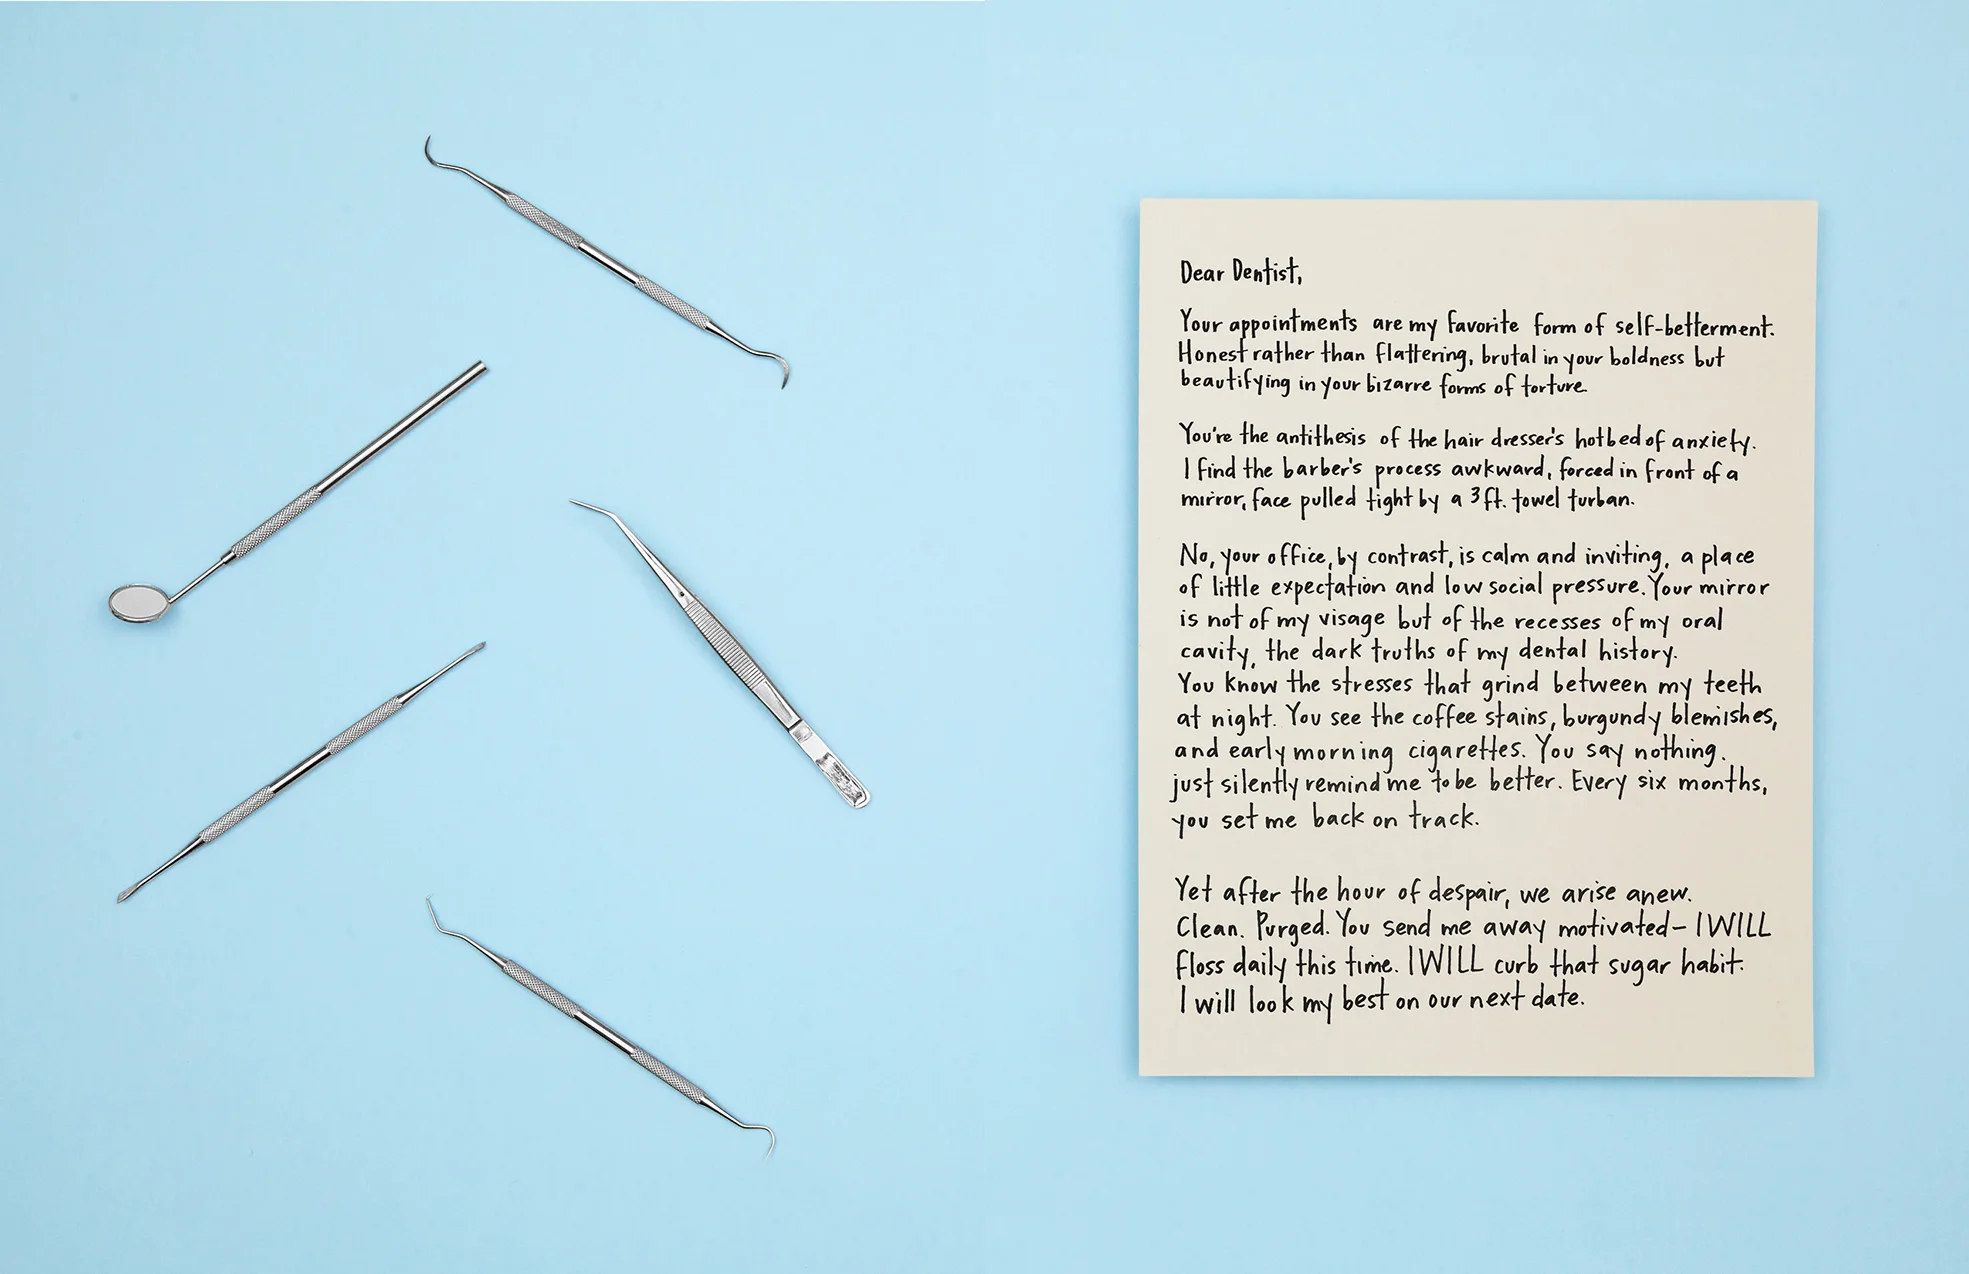 Dear Dentist,
Your appointments are my favorite form of self-betterment.
Honest rather than flattering, brutal in your boldness but
beautifying in your bizarre forms of torture.
You're the antithesis of the hair dresser's hotbed of anxiety.
I find the barber's process awkward, forced in front of a
mirror, face pulled tight by a 3ft. towel turban.
No, your office, by contrast, is calm and inviting, a place
of little expectation and low social pressure. Your mirror
is not of my visage but of the recesses of my oral
cavity, the dark truths of my dental history.
You know the stresses that grind between my teeth
at night. You see the coffee stains, burgundy blemishes,
and early morning cigarettes. You say nothing.
just silently remind me to be better. Every six months,
you set me back on track.
Yet after the hour of despair, we arise anew.
Clean. Purged. You send me away motivated- I WILL
floss daily this time. I WILL curb that sugar habit.
I will look my best on our next date.